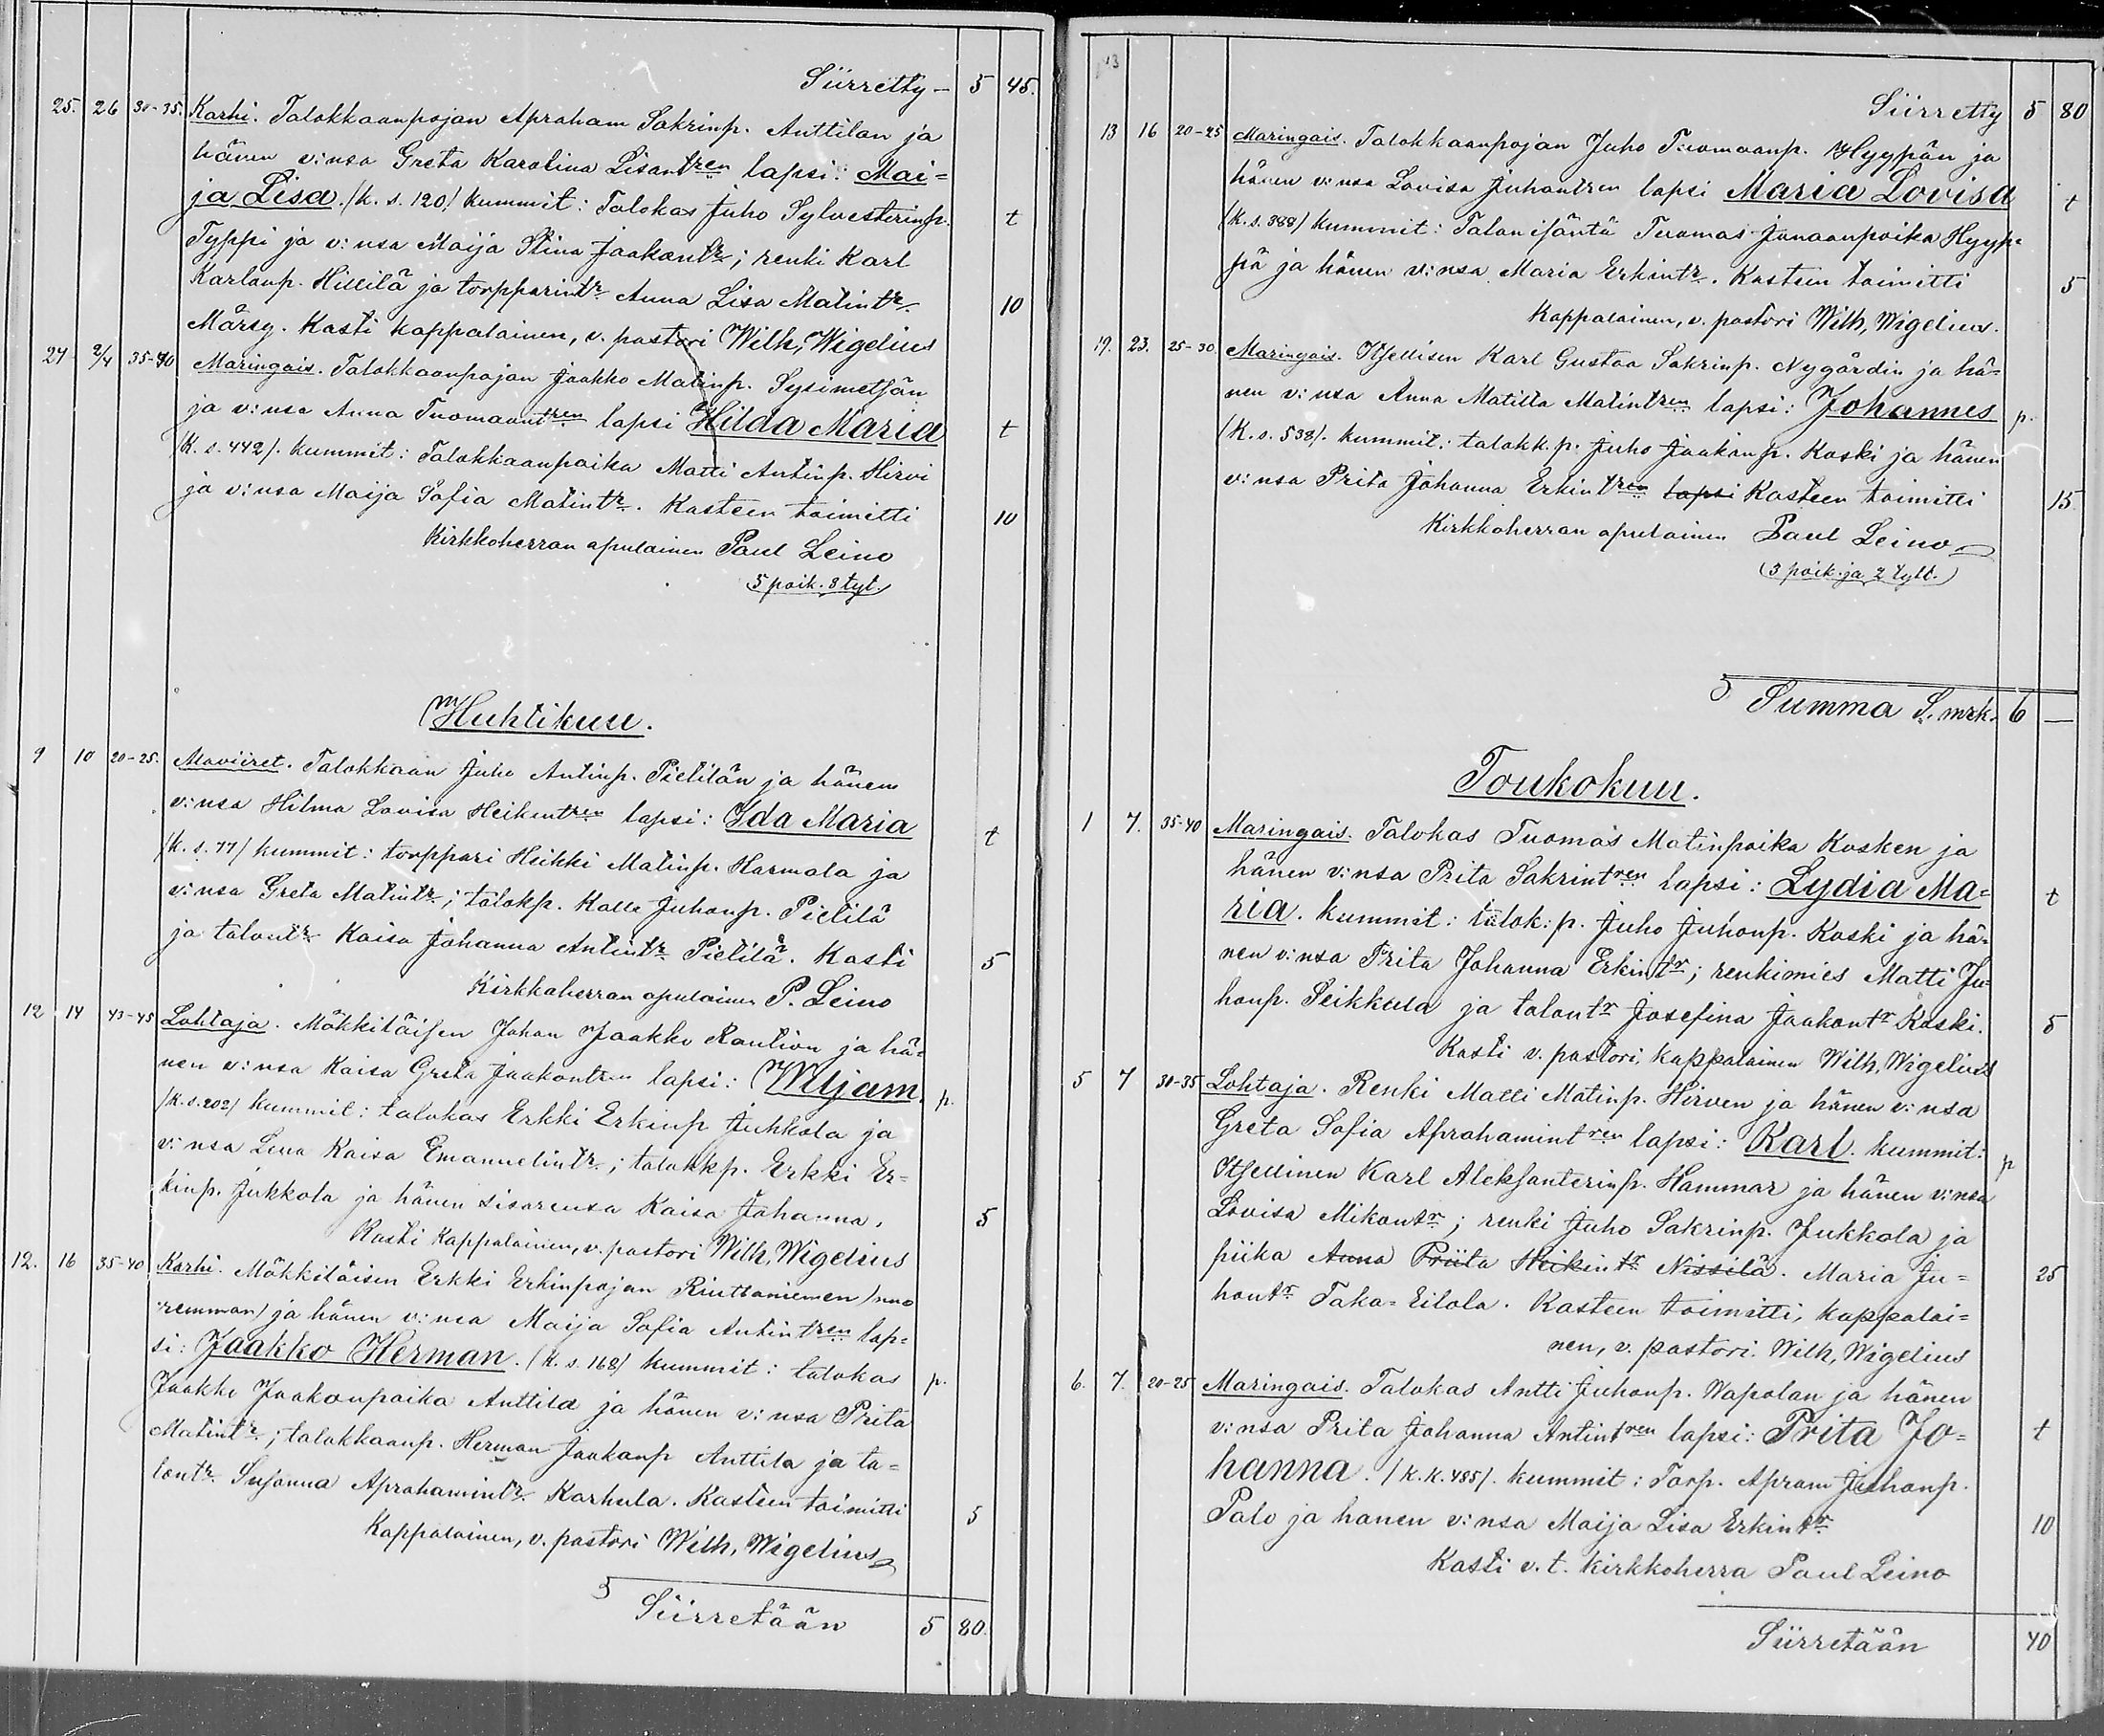 Siirretty – 5 45.
25. 26 30-35. Karhi. Talokkaanpojan Apraham Sakrinp. Anttilan ja
hänen v:nsa Greta Karolina Lisantren lapsi: Mai=
ja Lisa. (k. s. 120) kummit: Talokas Juho Sylvesterinp. t
Typpi ja v:nsa Maija Stina Jaakontr; renki Karl
Karlanp. Hillilä ja torpparintr Anna Lisa Matintr 10
Märsy. Kasti kappalainen, v. pastori Wilh, Wigelius
27 2/4 35-40 Maringais. Talokkaanpojan Jaakko Matinp. Sysimetsän
ja v:nsa Anna Tuomaantren lapsi Hilda Maria t
(K. s. 442). kummit: Talokkaanpoika Matti Antinp. Hirvi
ja v:nsa Maija Sofia Matintr. Kasteen toimitti 10
Kirkkoherran apulainen Paul Leino
5 poik. 8 tyt.
Huhtikuu.
9 10 20-25. Maviiret. Talokkaan Juho Antinp. Pietilän ja hänen
v:nsa Hilma Lovisa Heikentren lapsi: Ida Maria t
(k. s. 77) kummit: torppari Heikki Matinp. Harmala ja
v:nsa Greta Matintr; talokp. Kalle Juhonp. Pietilä
ja talontr Kaisa Johanna Antintr Pietilä. Kasti 5
Kirkkoherran apulainen P. Leino
12 14 43-45 Lohtaja. Mökkiläisen Johan Jaakko Raution ja hä=
nen v:nsa Kaisa Greta Jaakontren lapsi: Wiljam. p.
(K. s. 202) kummit: talokas Erkki Erkinp Jukkola ja
v:nsa Lena Kaisa Emanuelintr; talokkp. Erkki Er=
kinp. Jukkola ja hänen sisarensa Kaisa Johanna. 5
Kasti Kappalainen, v. pastori Wilh, Wigelius
12. 16 35-40 Karhi. Mökkiläisen Erkki Erkinpojan Rinttaniemen (nuo
remman) ja hänen v:nsa Maija Sofia Antintren lap=
si: Jaakko Herman. (k. s. 168) kummit: talokas p.
Jaakko Jaakonpoika Anttila ja hänen v:nsa Prita
Matintr; talokkaanp. Herman Jaakonp Anttila ja ta=
lontr Susanna Aprahamintr Karhula. Kasteen toimitti 5
Kappalainen, v. pastori Wilh, Wigelius
Siirretään 5 80.
13
Siirretty 5 80
13 16 20-25 Maringais. Talokkaanpojan Juho Tuomaanp. Hyypän ja
hänen v:nsa Lovisa Juhontren lapsi Maria Lovisa t
(k. s. 388) kummit: Talon isäntä Tuomas Junaanpoika Hyyp=
pä ja hänen v:nsa Maria Erkintr. Kasteen toimitti 5
Kappalainen, v. pastori Wilh, Wigelius.
19. 23. 25-30. Maringais. Itsellisen Karl Gustaa Sakrinp. Nygårdin ja hä=
nen v:nsa Anna Matilta Matintren lapsi: Johannes p.
(K. s. 538). kummit: talokk. p. Juho Jaakonp. Koski ja hänen
v:nsa Prita Johanna Erkintren lapsi Kasteen toimitti 15
Kirkkoherran apulainen Paul Leino
(3 poik. ja 2 tytt.)
Summa S. mrk. 6 –
Toukokuu.
1 7. 35-40 Maringais. Talokas Tuomas Matinpoika Kosken ja
hänen v:nsa Prita Sakrintren lapsi: Lydia Ma= t
ria. kummit: talok: p. Juho Juhonp. Koski ja hä=
nen v:nsa Prita Johanna Erkintr; renkimies Matti Ju=
honp. Peikkula ja talontr Josefina Jaakontr Koski. 5
Kasti v. pastori, kappalainen Wilh, Wigelius
5 7 30-35 Lohtaja. Renki Matti Matinp. Hirven ja hänen v:nsa
Greta Sofia Aprahamintren lapsi: Karl. kummit: p
Itsellinen Karl Aleksanterinp. Hammar ja hänen v:nsa
Lovisa Mikontr; renki Juho Sakrinp. Jukkola ja
piika Anna Priita Heikintr Nissilä. Maria Ju= 25
hontr Taka-Eilola. Kasteen toimitti, kappalai=
nen, v. pastori. Wilh, Wigelius
6. 7. 20-25 Maringais. Talokas Antti Juhonp. Wapolan ja hänen
v:nsa Prita Johanna Antintren lapsi: Prita Jo= t
hanna. (K. K. 485). kummit: Torp. Apram Juhonp.
Palo ja hanen v:nsa Maija Lisa Erkintr 10
Kasti v. t. kirkkoherra Paul Leino
Siirretään 40